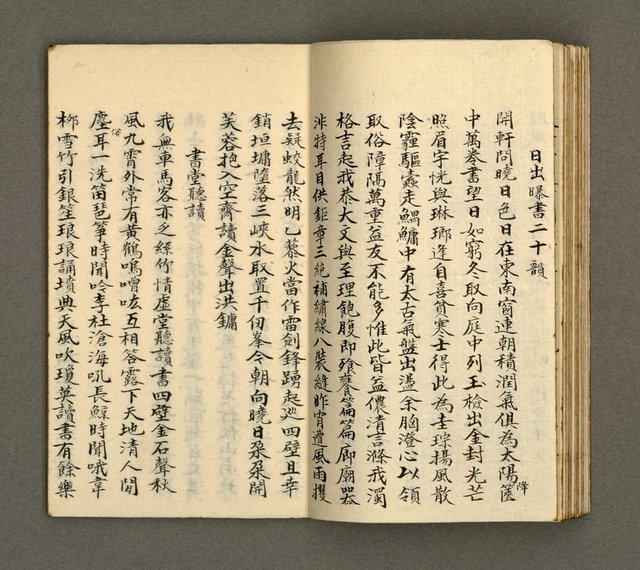 日出曝書二十韻
開軒問曉日色日在東南窗連朝積潤氣俱為太陽篋降
中萬卷書望日如窮冬取向庭中列玉檢出金封光芒
照眉宇恍與琳瑯逢自喜貧寒士得此為圭琮揚風散
陰霾驅蠹走鰅鱅中有太古氣盤出盪余胸澄心以領
取俗障隔萬重益友不能多惟此皆益儂清言滌我濁
格言起我恭大文與至理飽腹即飱饔篇篇廊廟器
非特耳目供鉅章三絕補繡線八裝縫昨宵遭風雨攫
去疑蛟龍然明乙藜火當作雷劍鋒踴起巡四壁且幸
銷垣墉墮落三峽水取置千仞峯今朝向曉日朶朶開
芙蓉抱入空齋讀金聲出洪鏞
書堂聽讀
我無車馬客亦乏絲竹情虛堂聽讀書四壁金石聲秋
風九霄外常有黃鶴鳴噌吰互相答露下天地清人間
塵耳一洗笛琶箏時聞唫李杜滄海吼長鯨時聞哦韋
俗
柳雪竹引銀笙琅琅誦墳典天風吹瓊英讀書有餘樂